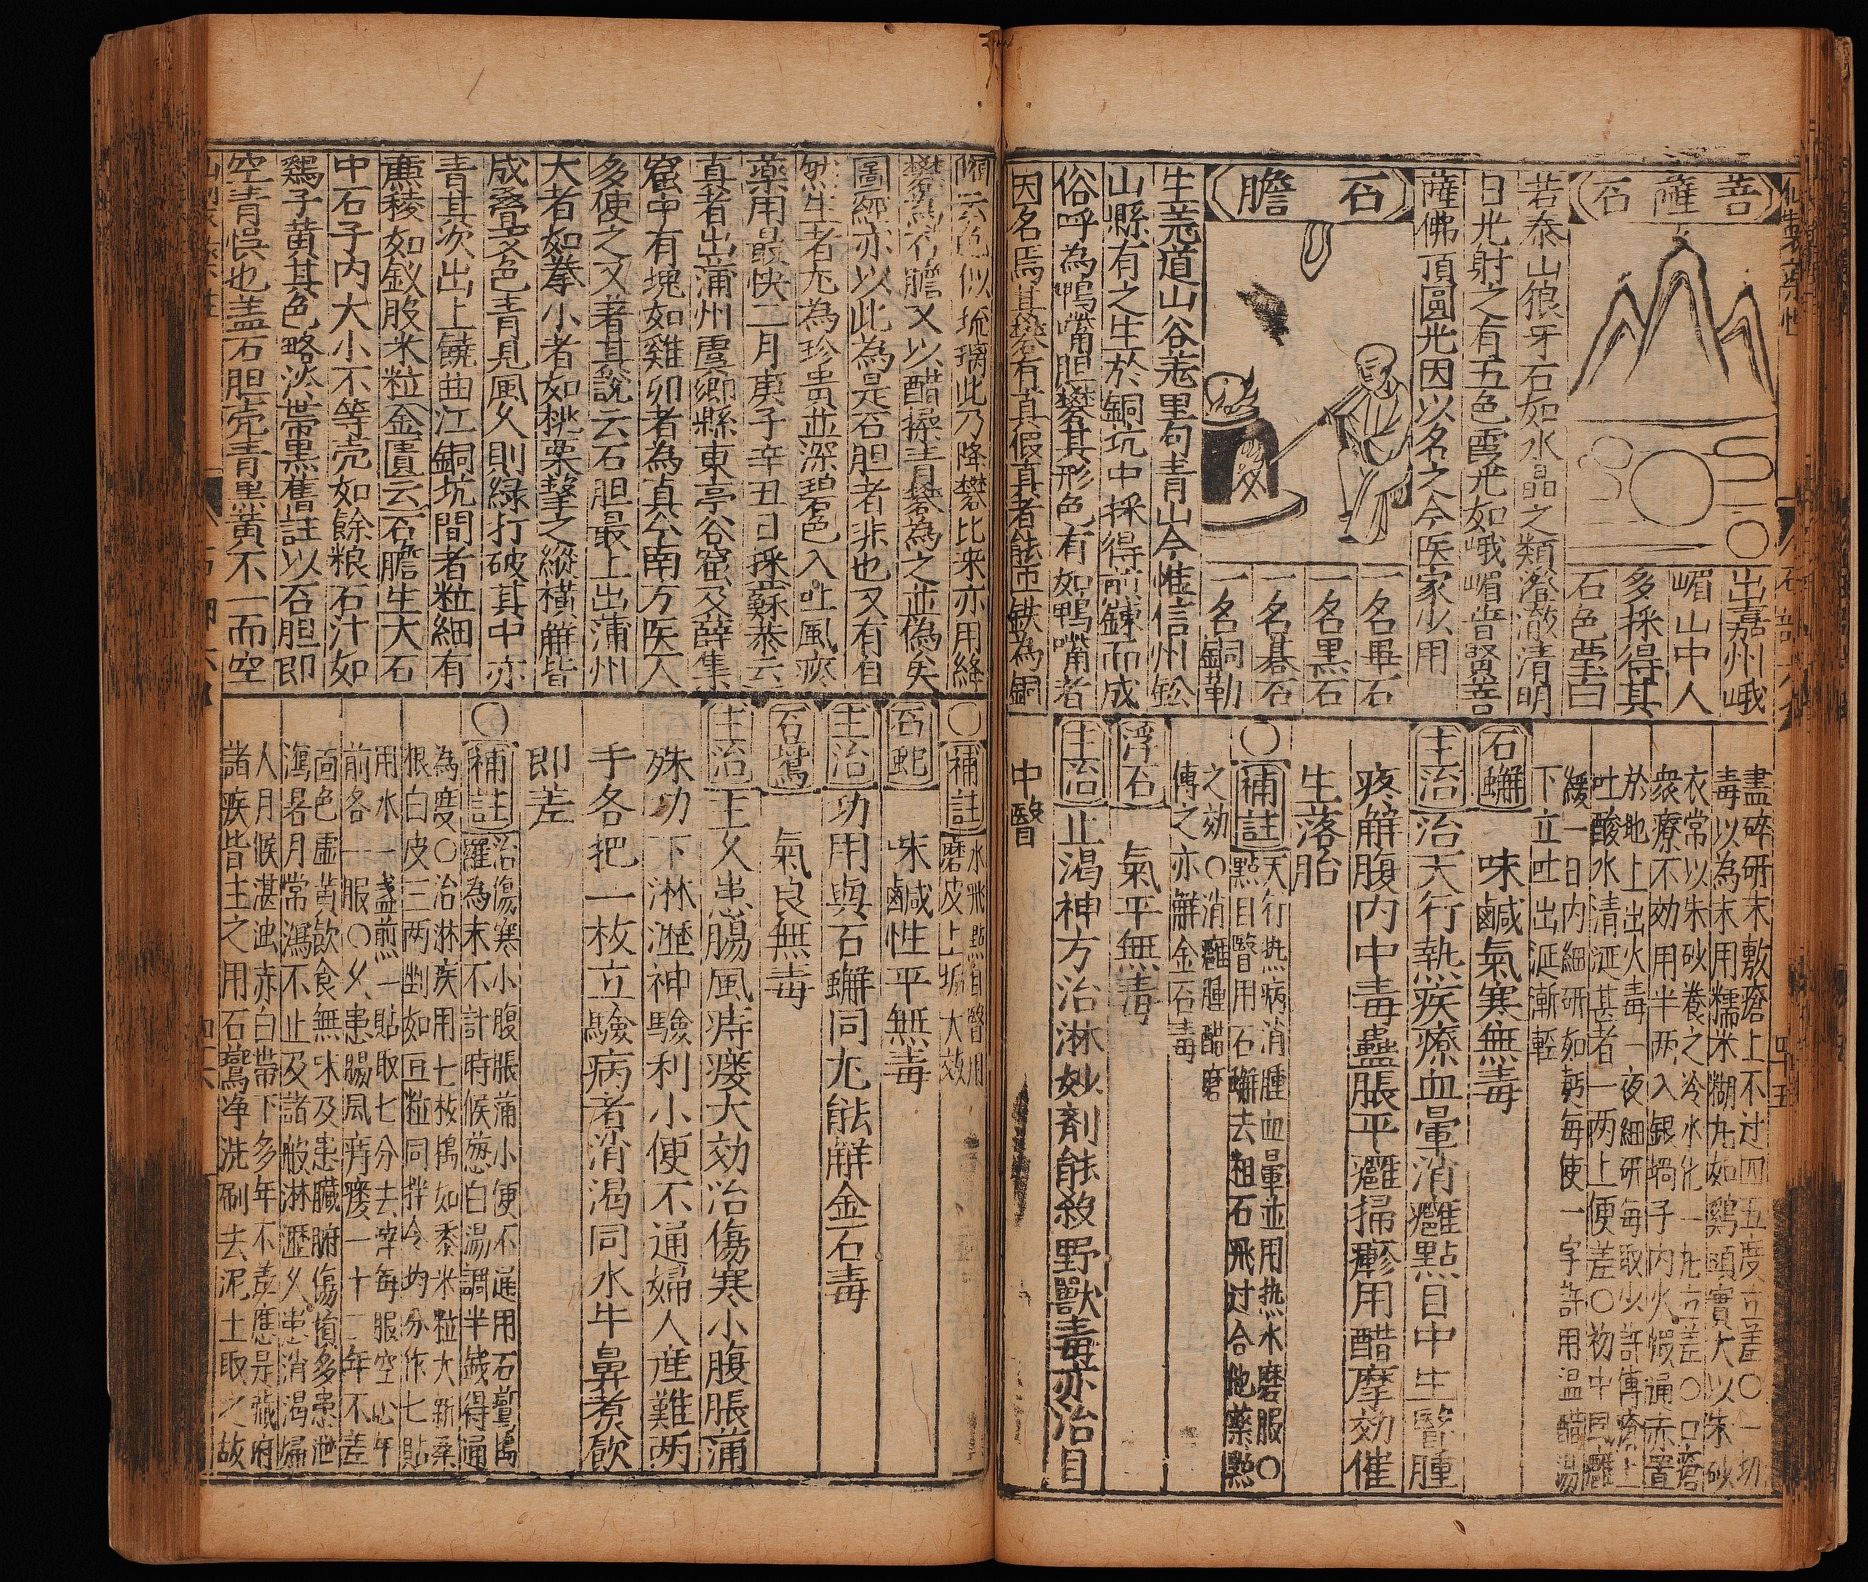 菩薩石
出嘉州峨
嵋山中人
多採得其
石色瑩白
若泰山狼牙石如水晶之類澄澈清明
日光射之有五色霞光如峨嵋普賢菩
薩佛頂圓光因以名之今医家少用
石膽
一名畢石
一名黑石
一名碁石
一名銅勒
生羌道山谷羌里句青山今惟信州鉛
山縣有之生於銅坑中採得煎鍊而成
俗呼為鴨嘴胆礬其形色有如鴨嘴者
因名焉其礬有真假真者能鉄為銅
盡碎研末敷瘡上不过四五度立差○一切
毒以為末用糯米糊丸如鷄頭實大以朱砂
衣常以朱砂養之冷水化一丸立差○口瘡
衆療不効用半两入銀鍋子内火煅通赤置
於地上出火毒一夜細研每取少許傅瘡上
吐酸水清涎甚者一两上便差○初中風癱
緩一日内細研如麪每使一字許用温醋湯
下立吐出涎漸輕
石蠏
味鹹氣寒無毒
主治
治天行熱疾療血暈消癰點目中生瞖腫
疼解腹内中毒蠱脹平癰掃瘮用醋摩効催
生落胎
○補註
天行热病消腫血暈並用热水磨服○
點目瞖用石蠏去粗石飛过合他藥點
之効○消癰腫醋磨
傅之亦解金石毒
浮石
氣平無毒
主治
止渴神方治淋妙剤能殺野獸毒亦治目
中瞖
石部六
四十五
隔云色似琉璃此乃降礬比来亦用絳
礬為石膽又以醋揉青礬為之並偽矣
圖經亦以此為是石胆者非也又有自
然生者尤為珍貴並深碧色入吐風痰
藥用最快二月庚子辛丑日採蘇恭云
真者出蒲州虞鄉縣東亭谷窟及薛集
窟中有塊如雞卵者為真今南方医人
多使之又著其說云石胆最上出蒲州
大者如拳小者如桃栗擊之縱橫觧皆
成疊文色青見風久則緑打破其中亦
青其次出上饒曲江銅坑間者粒細有
廉稜如釵股米粒金匱云石膽生大石
中石子内大小不等壳如餘粮石汁如
鷄子黄其色略淡帶黑舊註以石胆即
空青悞也盖石胆壳青黑黄不一而空
○補註
水飛點目瞖用
磨皮上㧾大效
石虵
味鹹性平無毒
主治
功用與石蠏同尤能解金石毒
石鷰
氣良無毒
主治
主久患腸風痔瘻大効治傷寒小腹脹滿
殊功下淋瀝神驗利小便不通婦人產難两
手各把一枚立驗病者消渴同水牛鼻煮飲
即差
○補註
治傷寒小腹脹滿小便不通用石鷰搗
羅為末不計時候葱白湯調半錢得通
為度○治淋疾用七枚搗如黍米粒大新桑
根白皮三两剉如豆粒同拌令均分作七貼
用水一盞煎一貼取七分去滓每服空心午
前各一服○久患腸風痔瘻一十二年不差
面色虛黄飲食無味及患臟腑傷損多患泄
瀉暑月常瀉不止及諸般淋瀝久患消渴婦
人月候湛濁赤白帶下多年不差應是藏府
諸疾皆主之用石鷰净洗刷去泥土取之故